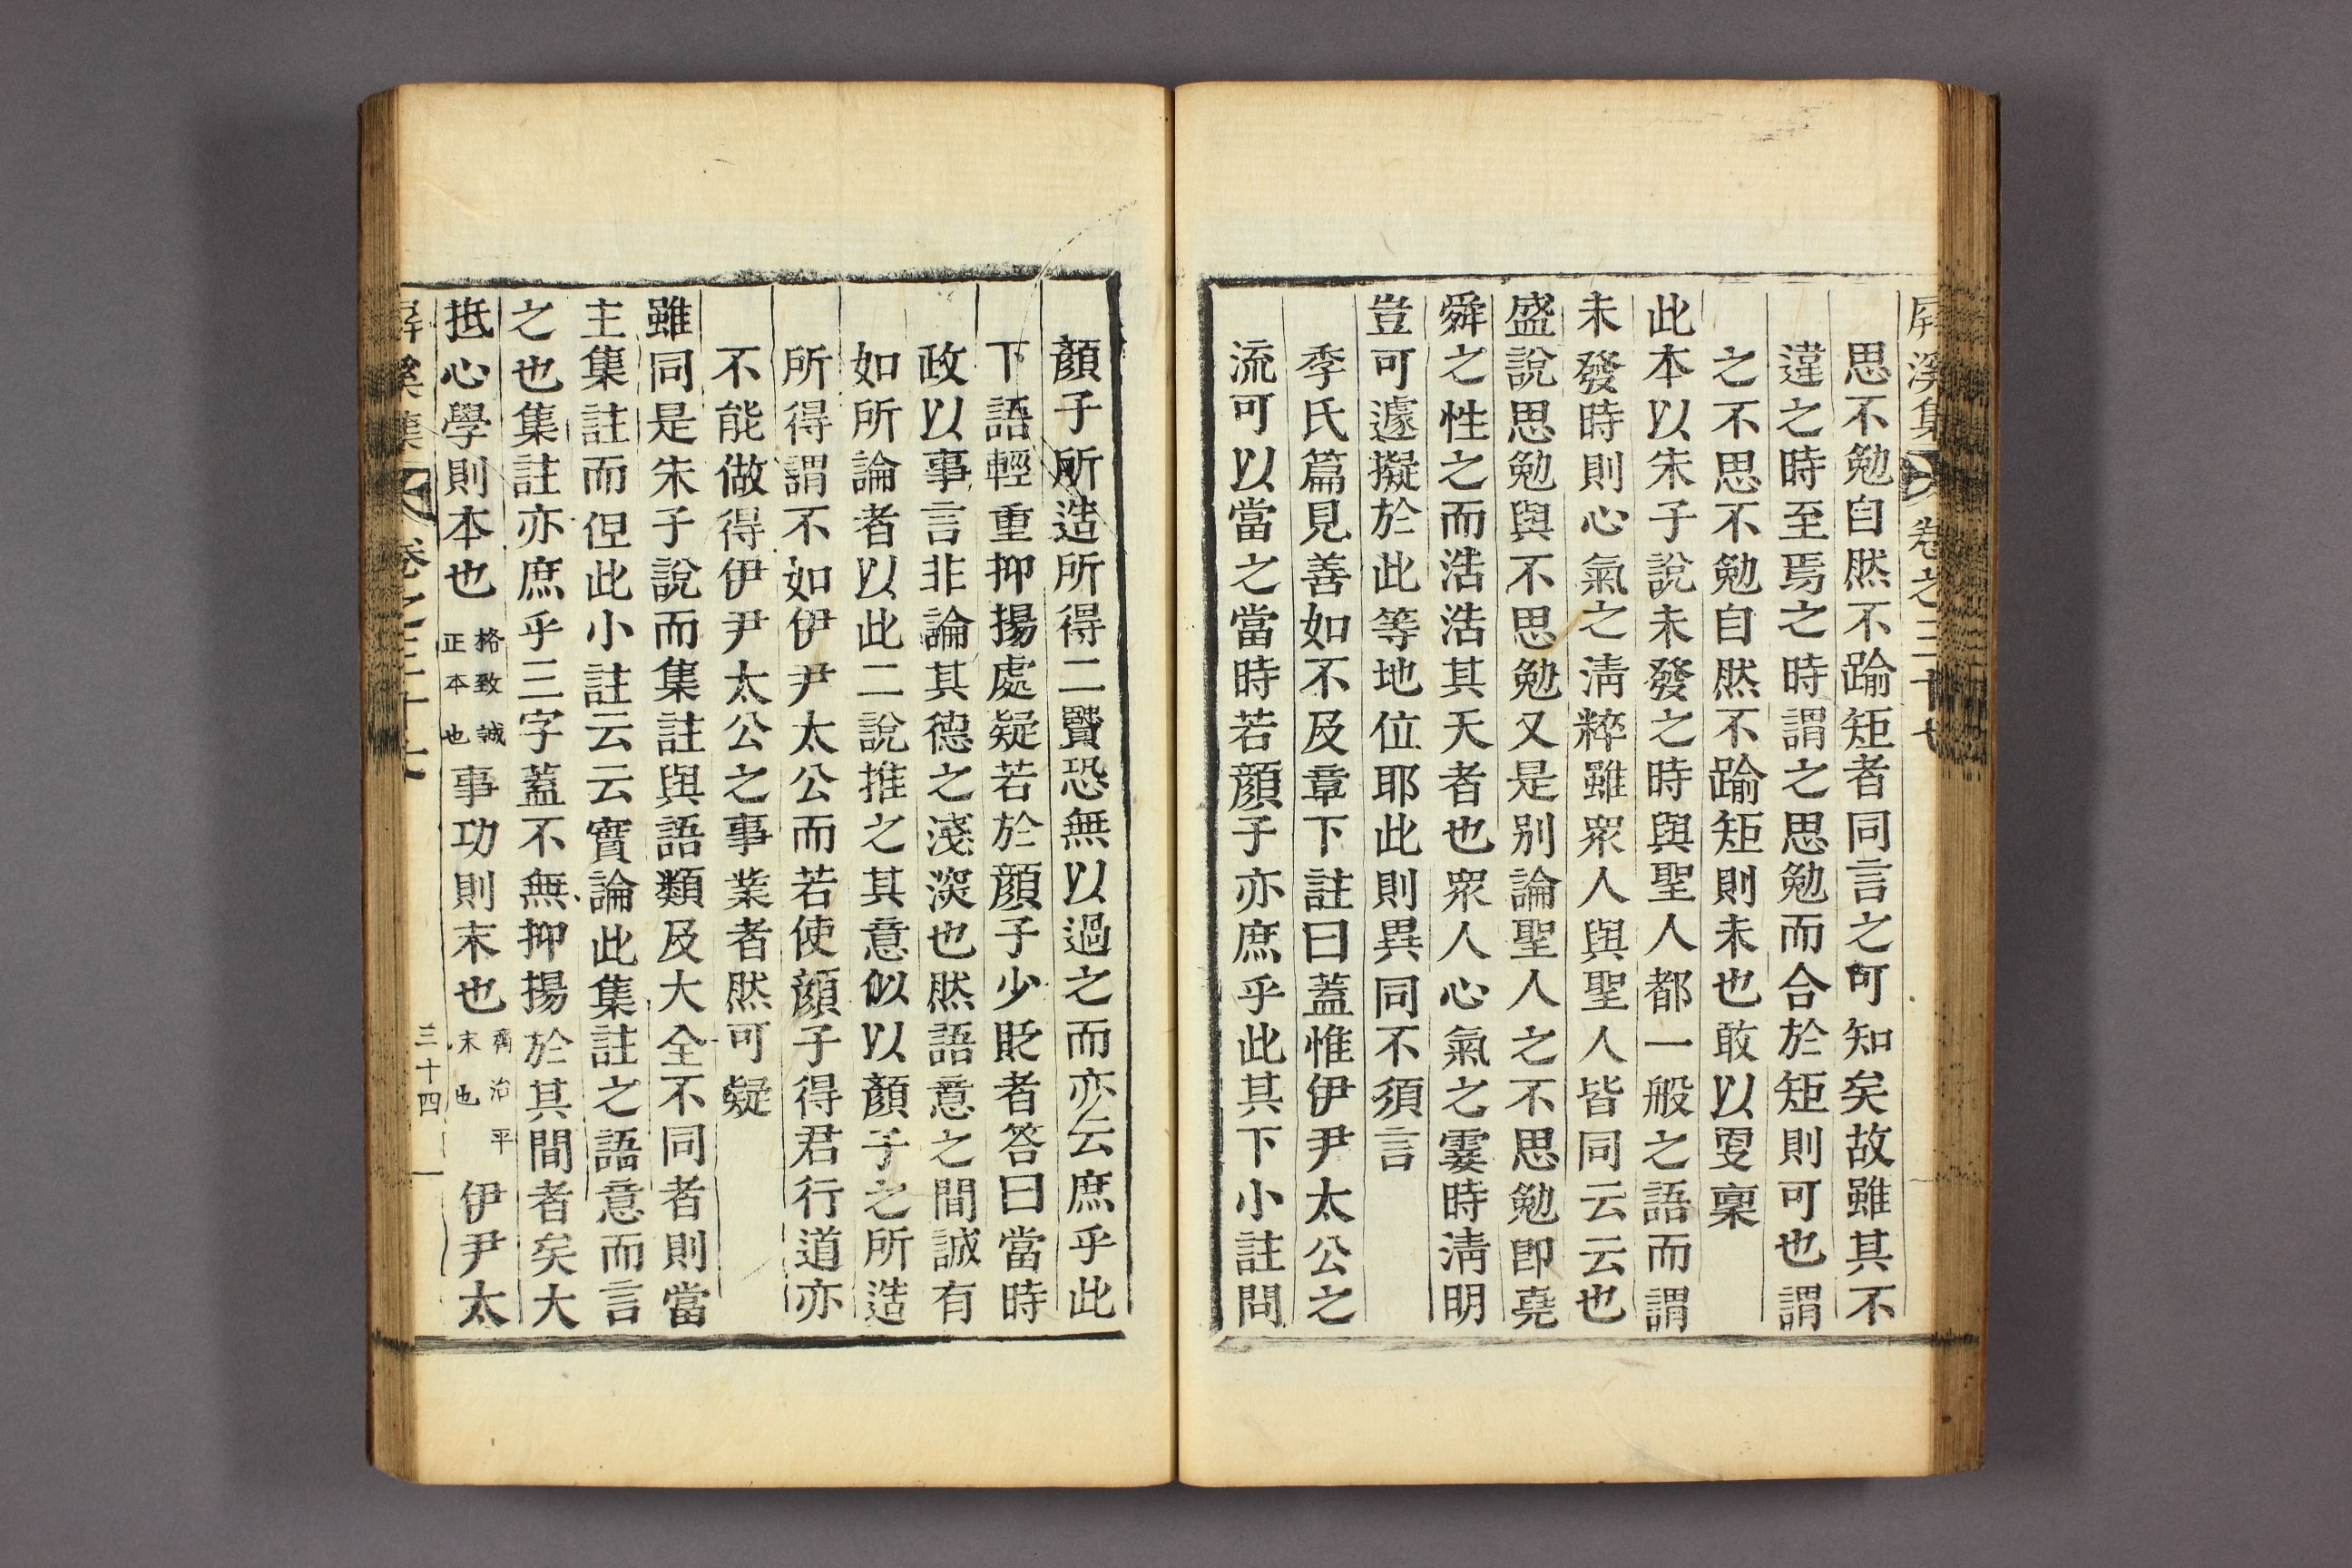 屛溪集 卷之三十七
思不勉自然不踰矩者同言之可知矣故雖其不
違之時至焉之時謂之思勉而合於矩則可也謂
之不思不勉自然不踰矩則未也敢以更稟
此本以朱子說未發之時與聖人都一般之語而謂
未發時則心氣之淸粹雖衆人與聖人皆同云云也
盛說思勉與不思勉又是别論聖人之不思勉卽堯
舜之性之而浩浩其天者也衆人心氣之霎時淸明
豈可遽擬於此等地位耶此則異同不須言
季氏篇見善如不及章下註曰蓋惟伊尹太公之
流可以當之當時若顔子亦庶乎此其下小註問
顔子所造所得二賢恐無以過之而亦云庶乎此
下語輕重抑揚處疑若於顔子少貶者答曰當時
政以事言非論其德之淺深也然語意之間誠有
如所論者以此二說推之其意似以顔子之所造
所得謂不如伊尹太公而若使顔子得君行道亦
不能做得伊尹太公之事業者然可疑
雖同是朱子說而集註與語類及大全不同者則當
主集註而但此小註云云實論此集註之語意而言
之也集註亦庶乎三字蓋不無抑揚於其間者矣大
抵心學則本也格致誠正本也事功則末也齊治平末也伊尹太
屛溪集 卷之三十七 三十四